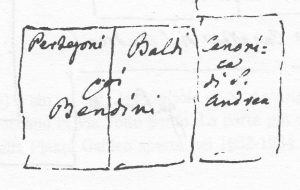 Pertegoni
Baldi
poi
Bandini
Canoni-
ca
di S.
Andrea